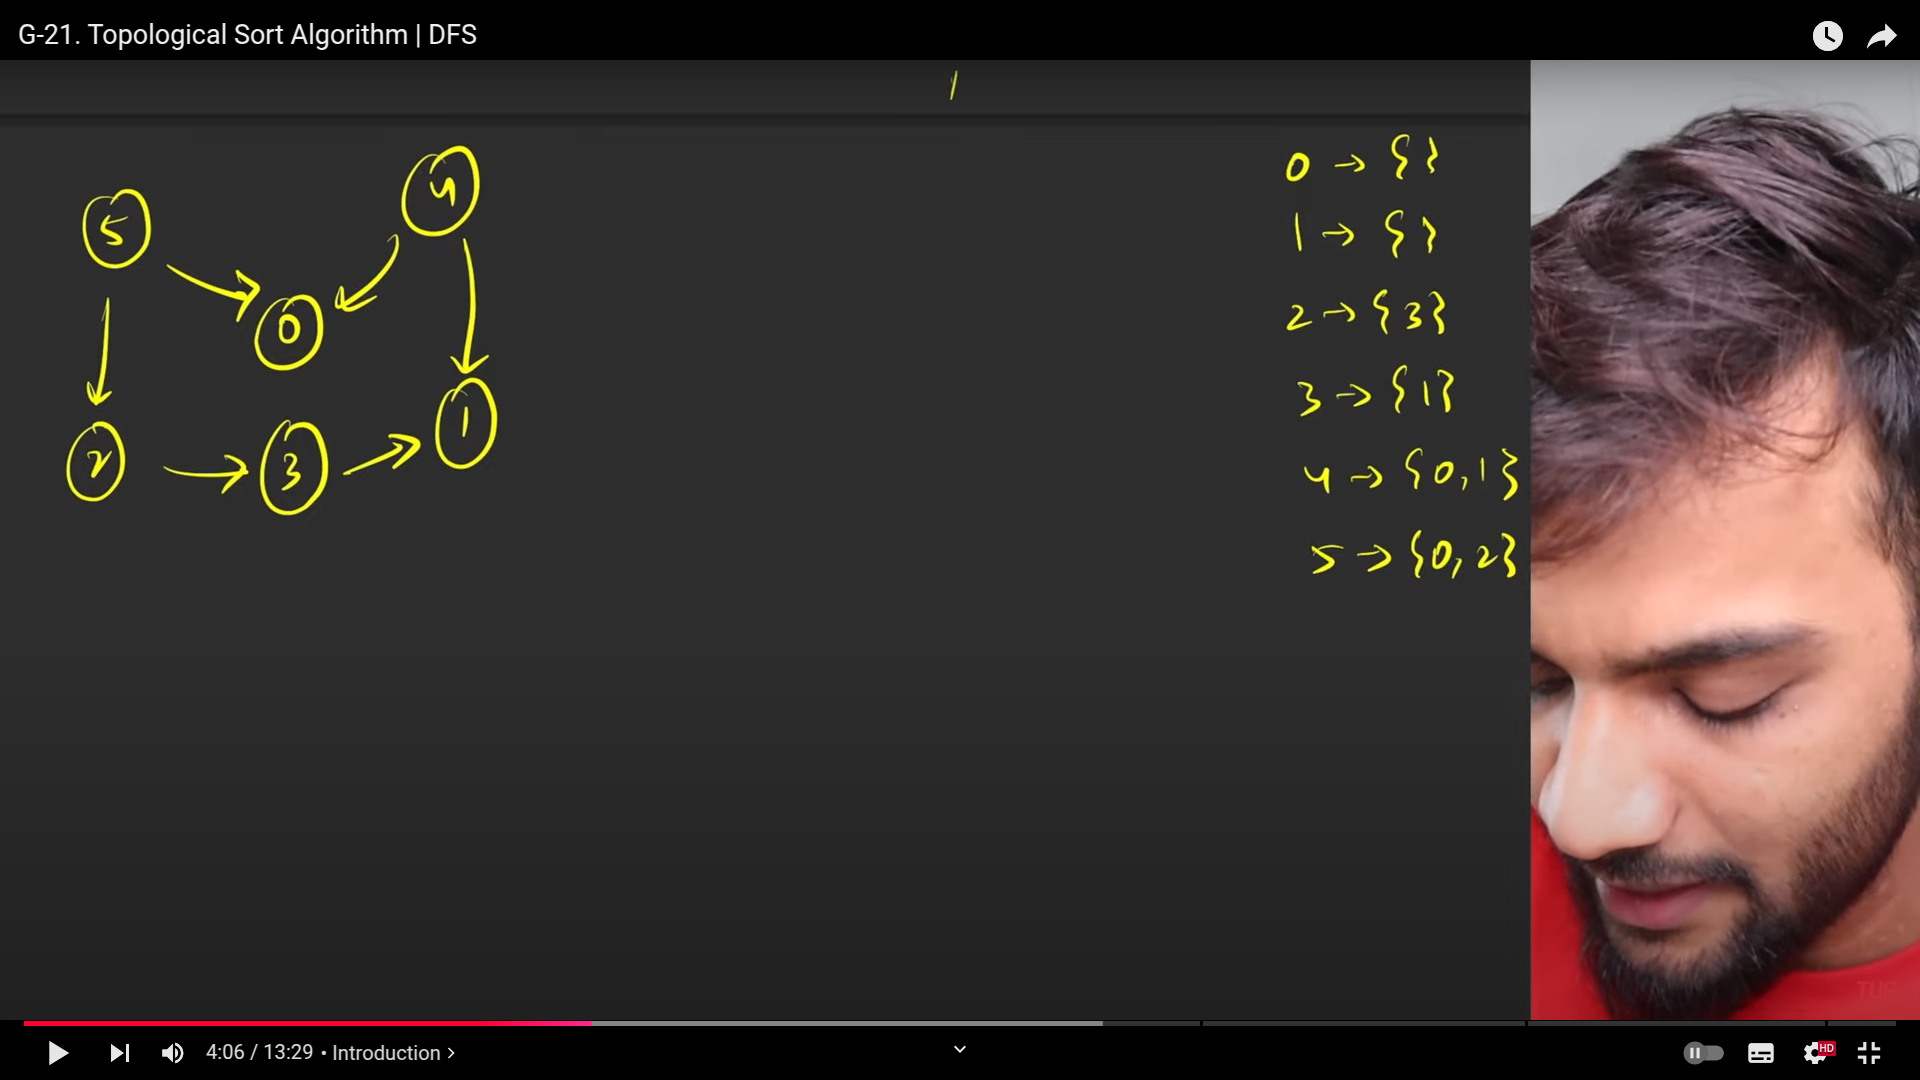 G-21. Topological Sort Algorithm | DFS
5
4
0
2
3
1
0 → { }
1 → { }
2 → {3}
3 → {1}
4 → {0,1}
5 → {0,2}
TUF
4:06 / 13:29 • Introduction >
HD